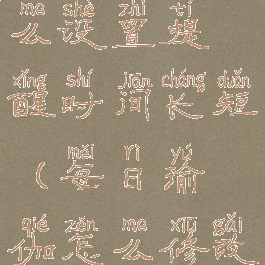 me shè zhì tí
么设置提
xǐng shí jiān cháng duǎn
醒时间长短
měi rì yú
（每日瑜
qié zěn me xiū gǎi
伽怎么修改